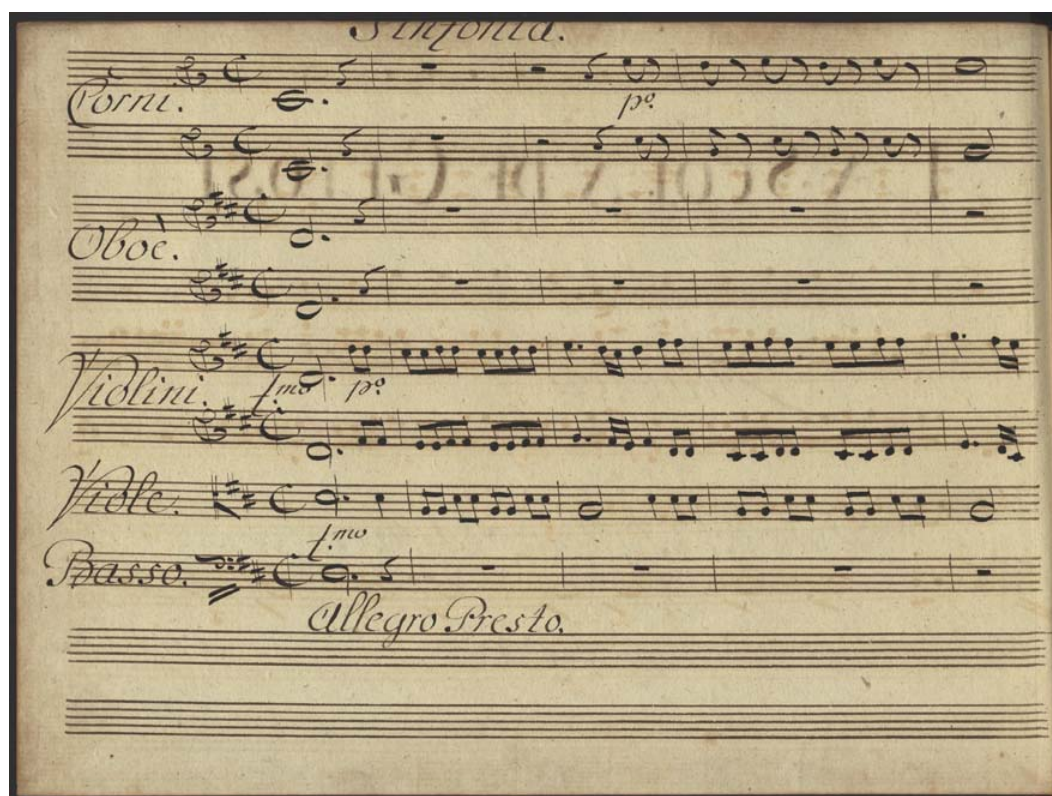 Sinfonia.
Corni.
po.
Oboè.
Violini.
fmo po.
Viole.
fmo
Basso.
Allegro Presto.